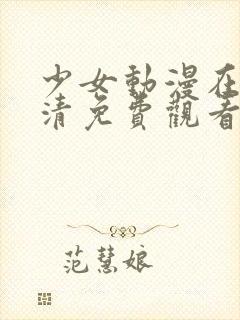 少女動漫在
清免費觀看
范慧娘